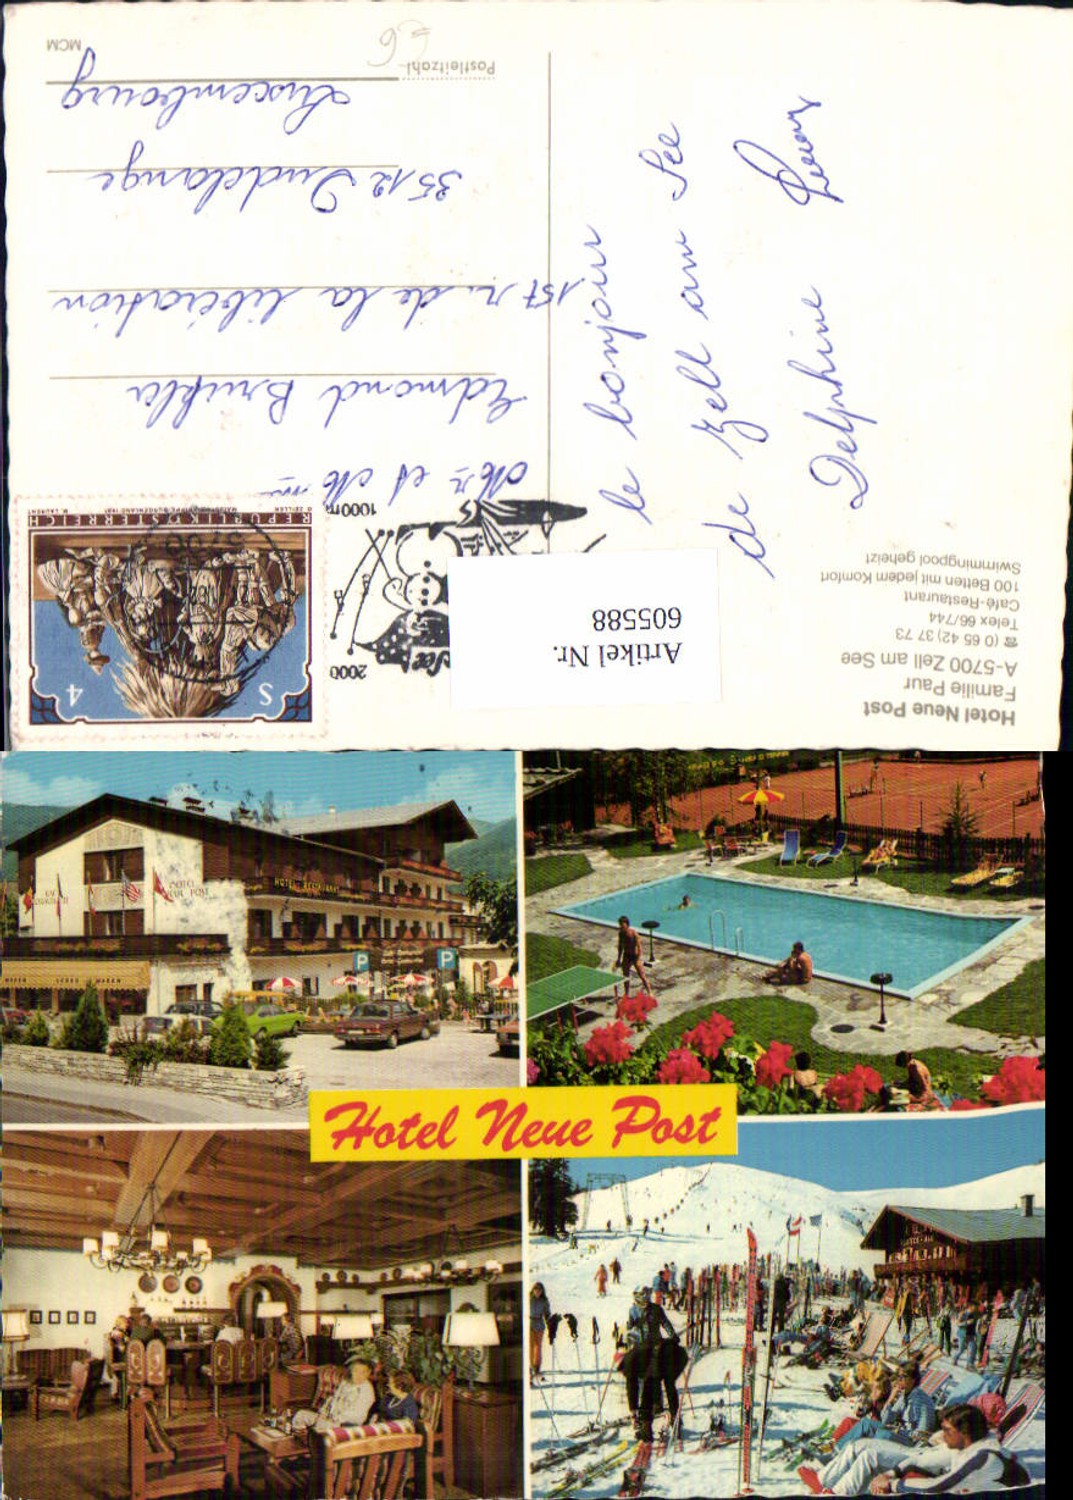 Hotel Neue Post
Familie Paur
A-5700 Zell am See
☎ (0 65 42) 37 73
Telex 66/744
Café-Restaurant
100 Betten mit jedem Komfort
Swimmingpool geheizt
Artikel Nr.
605588
le bonjour
de Zell am See
Delphine
2000
See
1000m
S 4
REPUBLIK ÖSTERREICH
5700
Mr et Mme
Edmond
157 r. de la libération
3512 Dudelange
Luxembourg
Postleitzahl
MCM
HOTEL RESTAURANT
HOTEL
NEUE POST
P
P
Hotel Neue Post